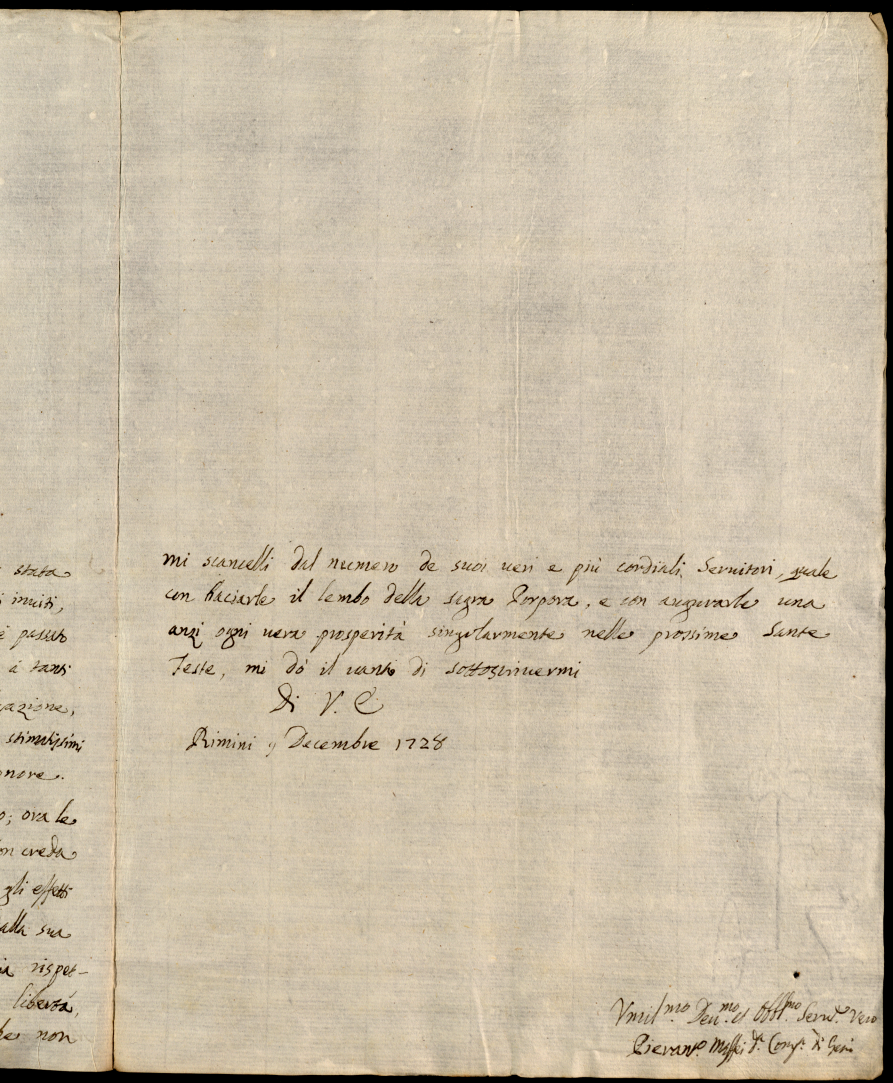 stata
inuiti,
è passato
à tanti
azione,
stimatissimi
onore.
o; ora le
on creda
gli effetti
alla sua
ia rispet-
libertà,
he non
mi scancelli dal numero de suoi ueri e più cordiali Seruitori, quale
con baciarle il lembo della sagra Porpora, e con augurarle una
anzi ogni uera prosperità singolarmente nelle prossime Sante
Feste, mi dò il uanto di sottoscriuermi
Di V. E
Rimini 9 Decembre 1728
Vmil.mo Deu.mo et Obb.mo Seru.e Vero
Pierant.o Maffei d. Comp. di Gesù